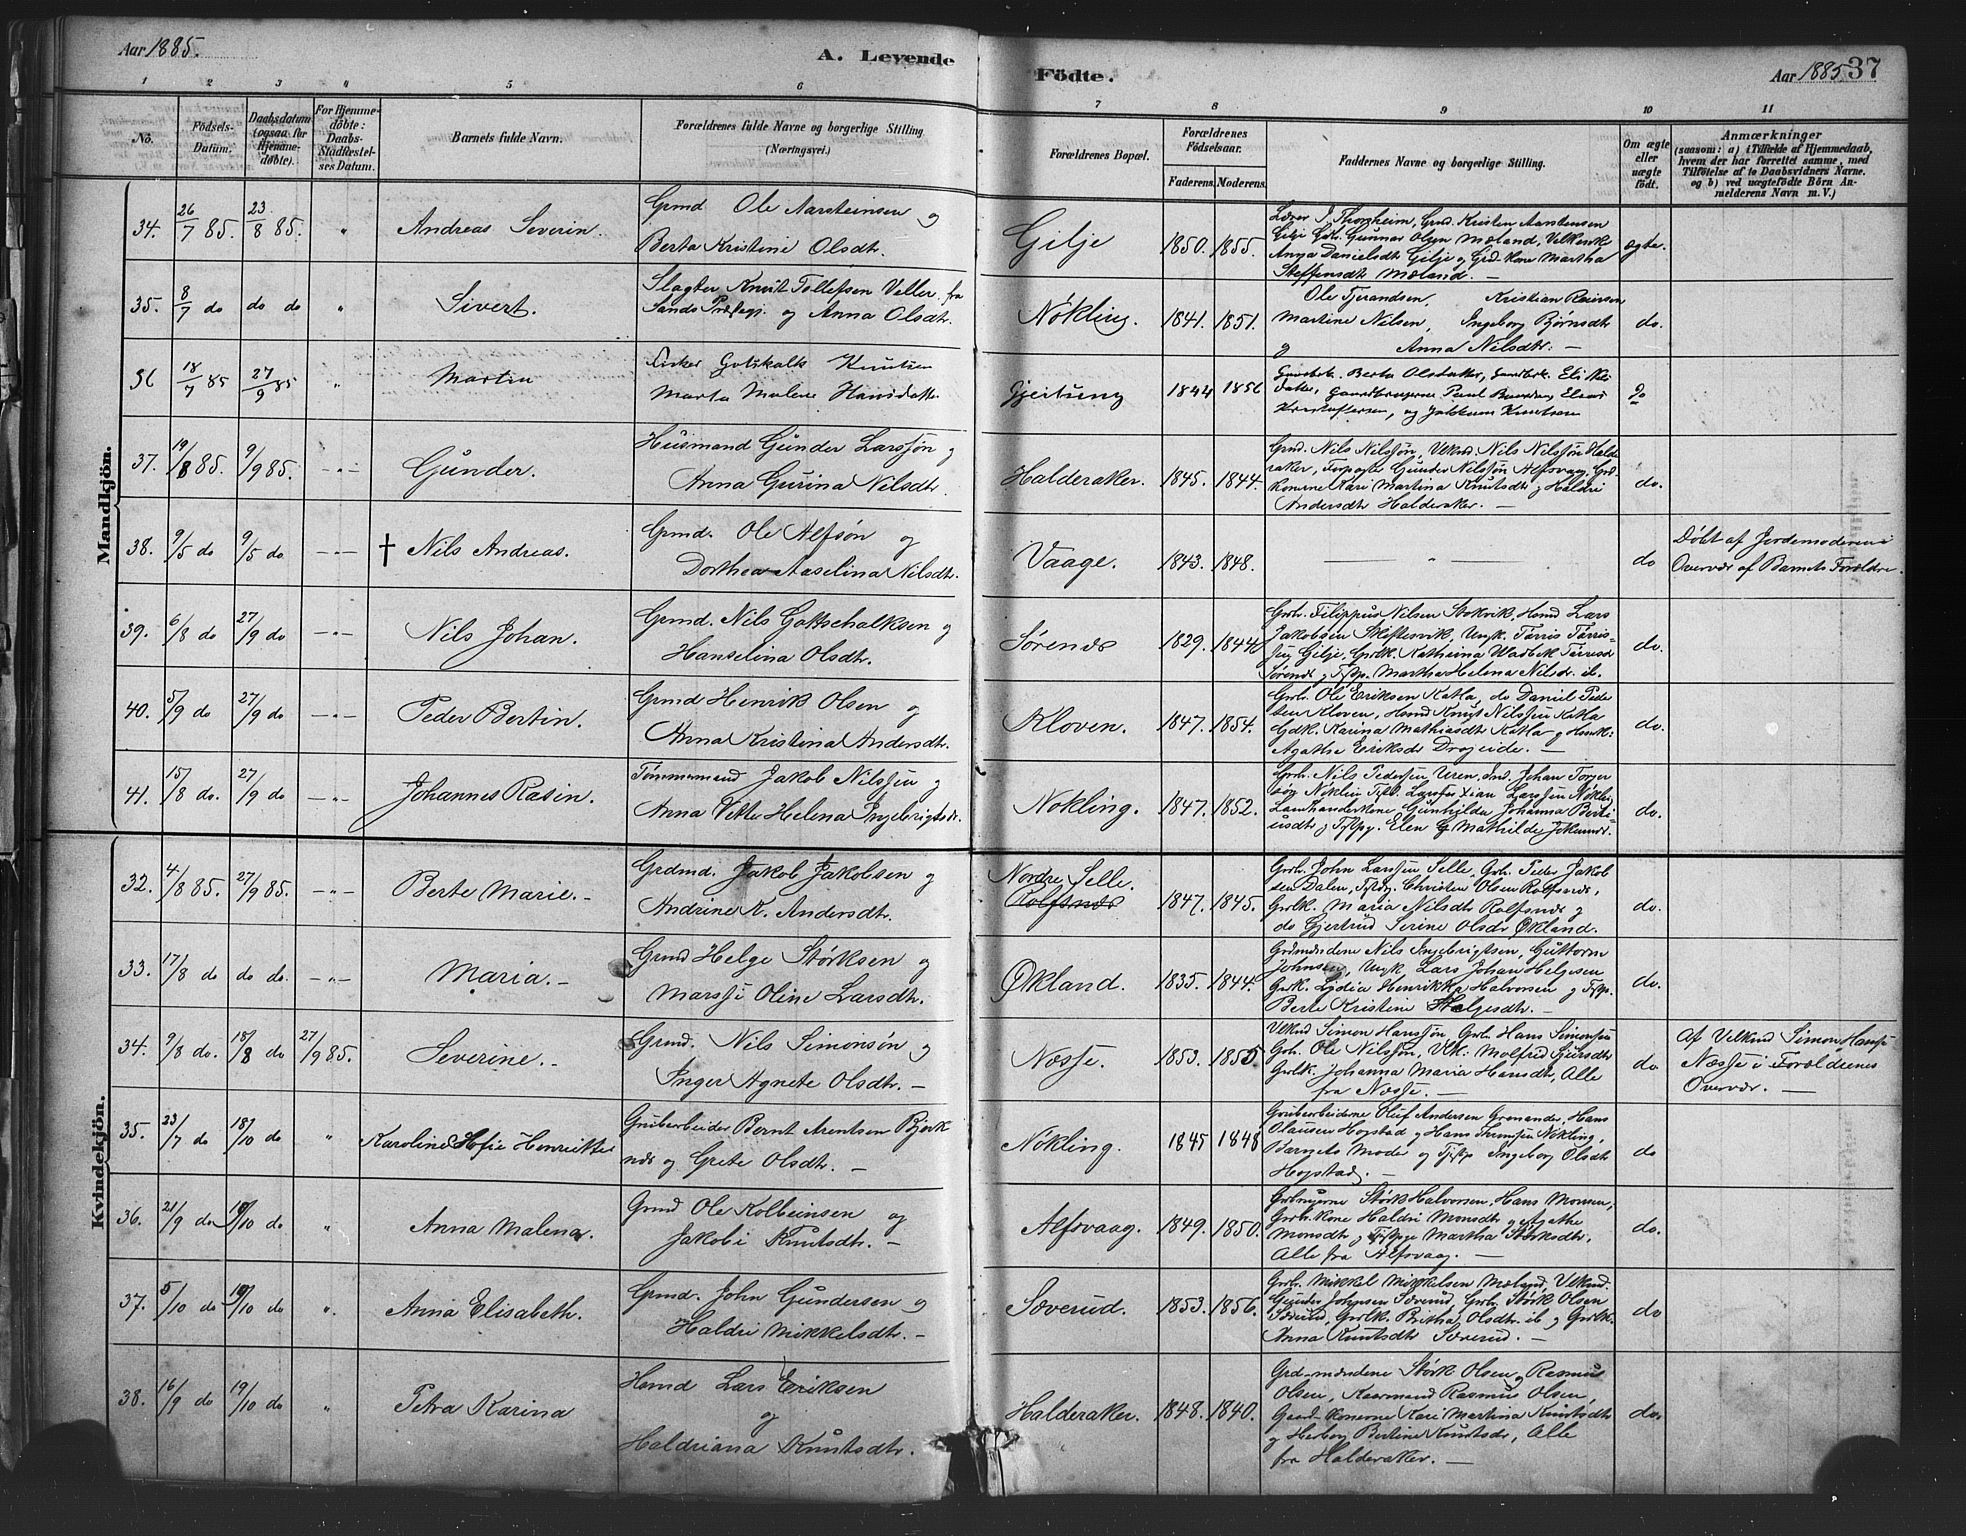 Aar 1885.
A. Levende
Födte.
Aar 1885 37
1 2 3 4 5 6 7 8 9 10 11
No.
Födsels-
Datum.
Daabsdatum
(ogsaa for
Hjemme-
döbte).
For Hjemme-
döbte:
Daabs-
Stadfæstel-
ses Datum.
Barnets fulde Navn.
Forældrenes fulde Navne og borgerlige Stilling
(Næringsvei.)
Forældrenes Bopæl.
Forældrenes
Födselsaar.
Faderens. Moderens.
Faddernes Navne og borgerlige Stilling.
Om ægte
eller
uægte
födt.
Anmærkninger
(saasom: a) i Tilfælde af Hjemmedaab,
hvem der har forrettet samme, med
Tilföielse af to Daabsvidners Navne.
og b) ved uægtefödte Börn An-
melderens Navn m. V.)
Mandkjön.
34. 26/7 85. 23/8 85. " Andreas Severin.
Grmd Ole Aarsteinsen og
Berta Kristine Olsdtr.
Gilje 1850. 1855.
Lærer J. Thorsheim, Grd. Kristen Aarstensen
Gilje Gbr. Gunnar Olsen Mæland,
Anna Danielsdt Gilje og Grd. Kone Martha
Steffensdt Mæland. —
ægte.
35. 8/7 do do do " Sivert.
Slagter Knut Tollefsen Veller fra
Sands Præstegj. og Anna Olsdtr.
Nökling. 1841. 1851.
Ole Tjerandsen, Kristian
Martine Nilsen, Ingeborg Bjørnsdtr
og Anna Nilsdtr. —
do.
36 18/7 85 27/9 85 " Martin
Gotskalk Knutsen
Marta Malene Hansdatter
Gjeitung 1844 1856
Berta Olsdatter,
Gaardbrugerne Paul
Kristoffersen, og Knutsen
Do
37. 19/8 85. 9/9 85. —"— Gunder.
Husmand Gunder Larssøn og
Anna Gurina Nilsdtr.
Halderaker. 1845. 1844.
Grd. Nils Nilssøn, Nils Nilssøn Halde
raker, Gunder Nilssøn Alfsvaag, Grd
konerne Kari Martina Knutsdtr og Haldri
Andersdt Halderaker. —
do.
38. 9/5 do 9/5 do —"— † Nils Andreas.
Grmd. Ole Alfsøn og
Dorthea Aaselina Nilsdtr.
Vaage. 1843. 1848.
— " —
do
Døbt af Jordemoderen i
Overvær af Barnets Forældre.
39. 6/8 do 27/9 do —"— Nils Johan.
Grmd. Nils Gottschalksen og
Hanselina Olsdtr.
Sørenæs 1829. 1844
Grbr. Filippus Nilsen Stokvik, Hsmd Lars
Jakobsen Skiftesvik, Ungk. Tørris Tørris-
Gilje, Grbk. Kathrina
Martha Helena Nilsdr. ib.
do.
40. 5/9 do 27/9 do —"— Peder Bertin.
Grmd Henrik Olsen og
Anna Kristina Andersdtr.
Kloven. 1847. 1854.
Grbr. Ole Eriksen Katla, do Daniel Peder
sen Kloven, Hsmd Knut Nilssen Katla
Karina Mathiasdt Katla og
Agathe Eriksdr Drøneide. —
do.
41. 15/8 do. 27/9 do —"— Johannes Rasin.
Tømmermand Jakob Nilssen og
Anna Vette Helena Ingebrigtsdr.
Nökling. 1847. 1852.
Grbr. Nils Pederssen Uren, Johan
Larssen
Gunhilda Johanna
Elen Mathilde
do.
Kvindekjön.
32. 4/8 85. 27/9 85. —"— Berte Marie. —
Grdmd. Jakob Jakobsen og
Andrine K. Andersdtr.
Nordre Selle.
Rolfsnæs
1847. 1845.
Grbr. John Larssen Selle, Grbr. Peder Jakob
sen Dalen, Christen Olsen Rolfsnæs,
Grbk. Maria Nilsdtr Rolfsnæs og
do Gjertrud Serine Olsdr Økland.
do.
33. 17/8 do do do. —"— Maria. —
Grmd Helge Størksen og
Oline Larsdtr.
Økland. 1835. 1844.
Grdmændene Nils Ingebrigtsen, Guttorm
Johnsen, Ungk. Lars Johan Helgesen,
Grbk. Lydia Henrikke Halvorsen og
Berte Kristine Helgesdtr. —
do.
34. 9/8 do. 18/8 do 27/9 85. Severine. —
Grmd. Nils Simonsøn og
Inger Agnete Olsdtr. —
Næsse. 1853. 1855
Simon Hanssøn, Grbr. Hans Simonsen
Grbr. Ole Nilssøn,
Grbk. Johanna Maria Hansdtr, Alle
fra Næsse. —
do
Af Simon Hanss.
Næsse i Forældrenes
Overvær. —
35. 23/7 do 18/10 do " Karoline Sofie Henriette
Grubearbeider Bernt Arentsen Bjerk
næs og Grete Olsdtr. —
Nökling. 1845 1848
Grubearbeiderne Oluf Andersen Grønander, Hans
Olausen Hopstad og Hans Nökling,
Barnets Moder og Ingeborg Olsdt
Hopstad. —
do
36. 21/9 do 18/10 do " Anna Malena.
Grmd Ole Kolbeinsen og
Jakobi Knutsdtr. —
Alfsvaag. 1849. 1850.
Størk Halvorsen, Hans Monsen,
Grbr. kone Haldri Monsdtr og Agathe
Monsdtr og Martha Størksdtr,
Alle fra Alfsvaag. —
do.
37. 5/10 do 18/10 do " Anna Elisabeth.
Grmd. John Gundersen og
Haldri Mikkelsdtr. —
Sæverud. 1853. 1856.
Grbr. Mikkel Mikkelsen Mæland,
Gunder Johnsen Sæverud, Grbr. Størk Olsen
Sæverud, Grbk. Britha Olsdtr. ib og Grbk.
Anna Knutsdtr Sæverud. —
do
38. 16/9 do 19/10 do " Petra Karina
Hsmd Lars Eriksen
og
Haldriana Knutsdtr.
Halderaker. 1848. 1840.
Grd-mændene Størk Olsen og Rasmus
Olsen, Kaarmand Rasmus Olsen,
Gaard-konerne Kari Martina Knutsdtr
og Herborg Bertine Knutsdr, Alle
fra Halderaker. —
do.